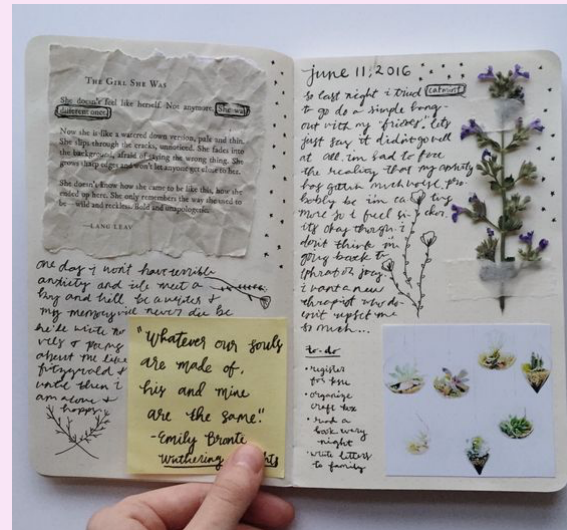 THE GIRL SHE WAS
She doesn't feel like herself. Not anymore. She was
different once.
Now she is like a watered down version, pale and thin.
She slips through the cracks, unnoticed. She fades into
the background, afraid of saying the wrong thing. She
grows sharp edges and won't let anyone get close to her.
She doesn't know how she came to be like this, how she
ended up here. She only remembers the way she used to
be—wild and reckless. Bold and unapologetic.
—LANG LEAV
one day i won't have terrible
anxiety and i'll meet a
boy and he'll be a writer &
my memory will never die bc
he'll write no
vels & poems
about me like
fitzgerald &
until then i
am alone &
happy
"Whatever our souls
are made of,
his and mine
are the same."
-Emily Bronte
Wuthering
june 11, 2016
so last night i tried
catmint
to go do a simple hang-
out with my "friends". let's
just say it didn't go well
at all. im sad to face
the reality that my anxiety
has gotten much worse. pro-
bably be im
more so i feel
its okay though i
don't think im
going back to
i want a new
therapist who do-
esn't upset me
so much...
to-do
• register
for
• organize
craft box
• read a
book every
night
• write letters
to family